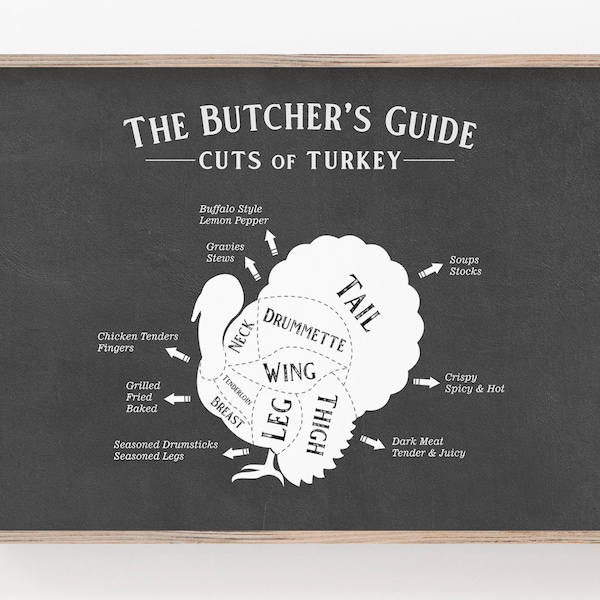 THE BUTCHER'S GUIDE
CUTS OF TURKEY
Buffalo Style
Lemon Pepper
Gravies
Stews
Soups
Stocks
TAIL
NECK
DRUMMETTE
Chicken Tenders
Fingers
WING
TENDERLOIN
Crispy
Spicy & Hot
Grilled
Fried
Baked
BREAST
LEG
THIGH
Seasoned Drumsticks
Seasoned Legs
Dark Meat
Tender & Juicy